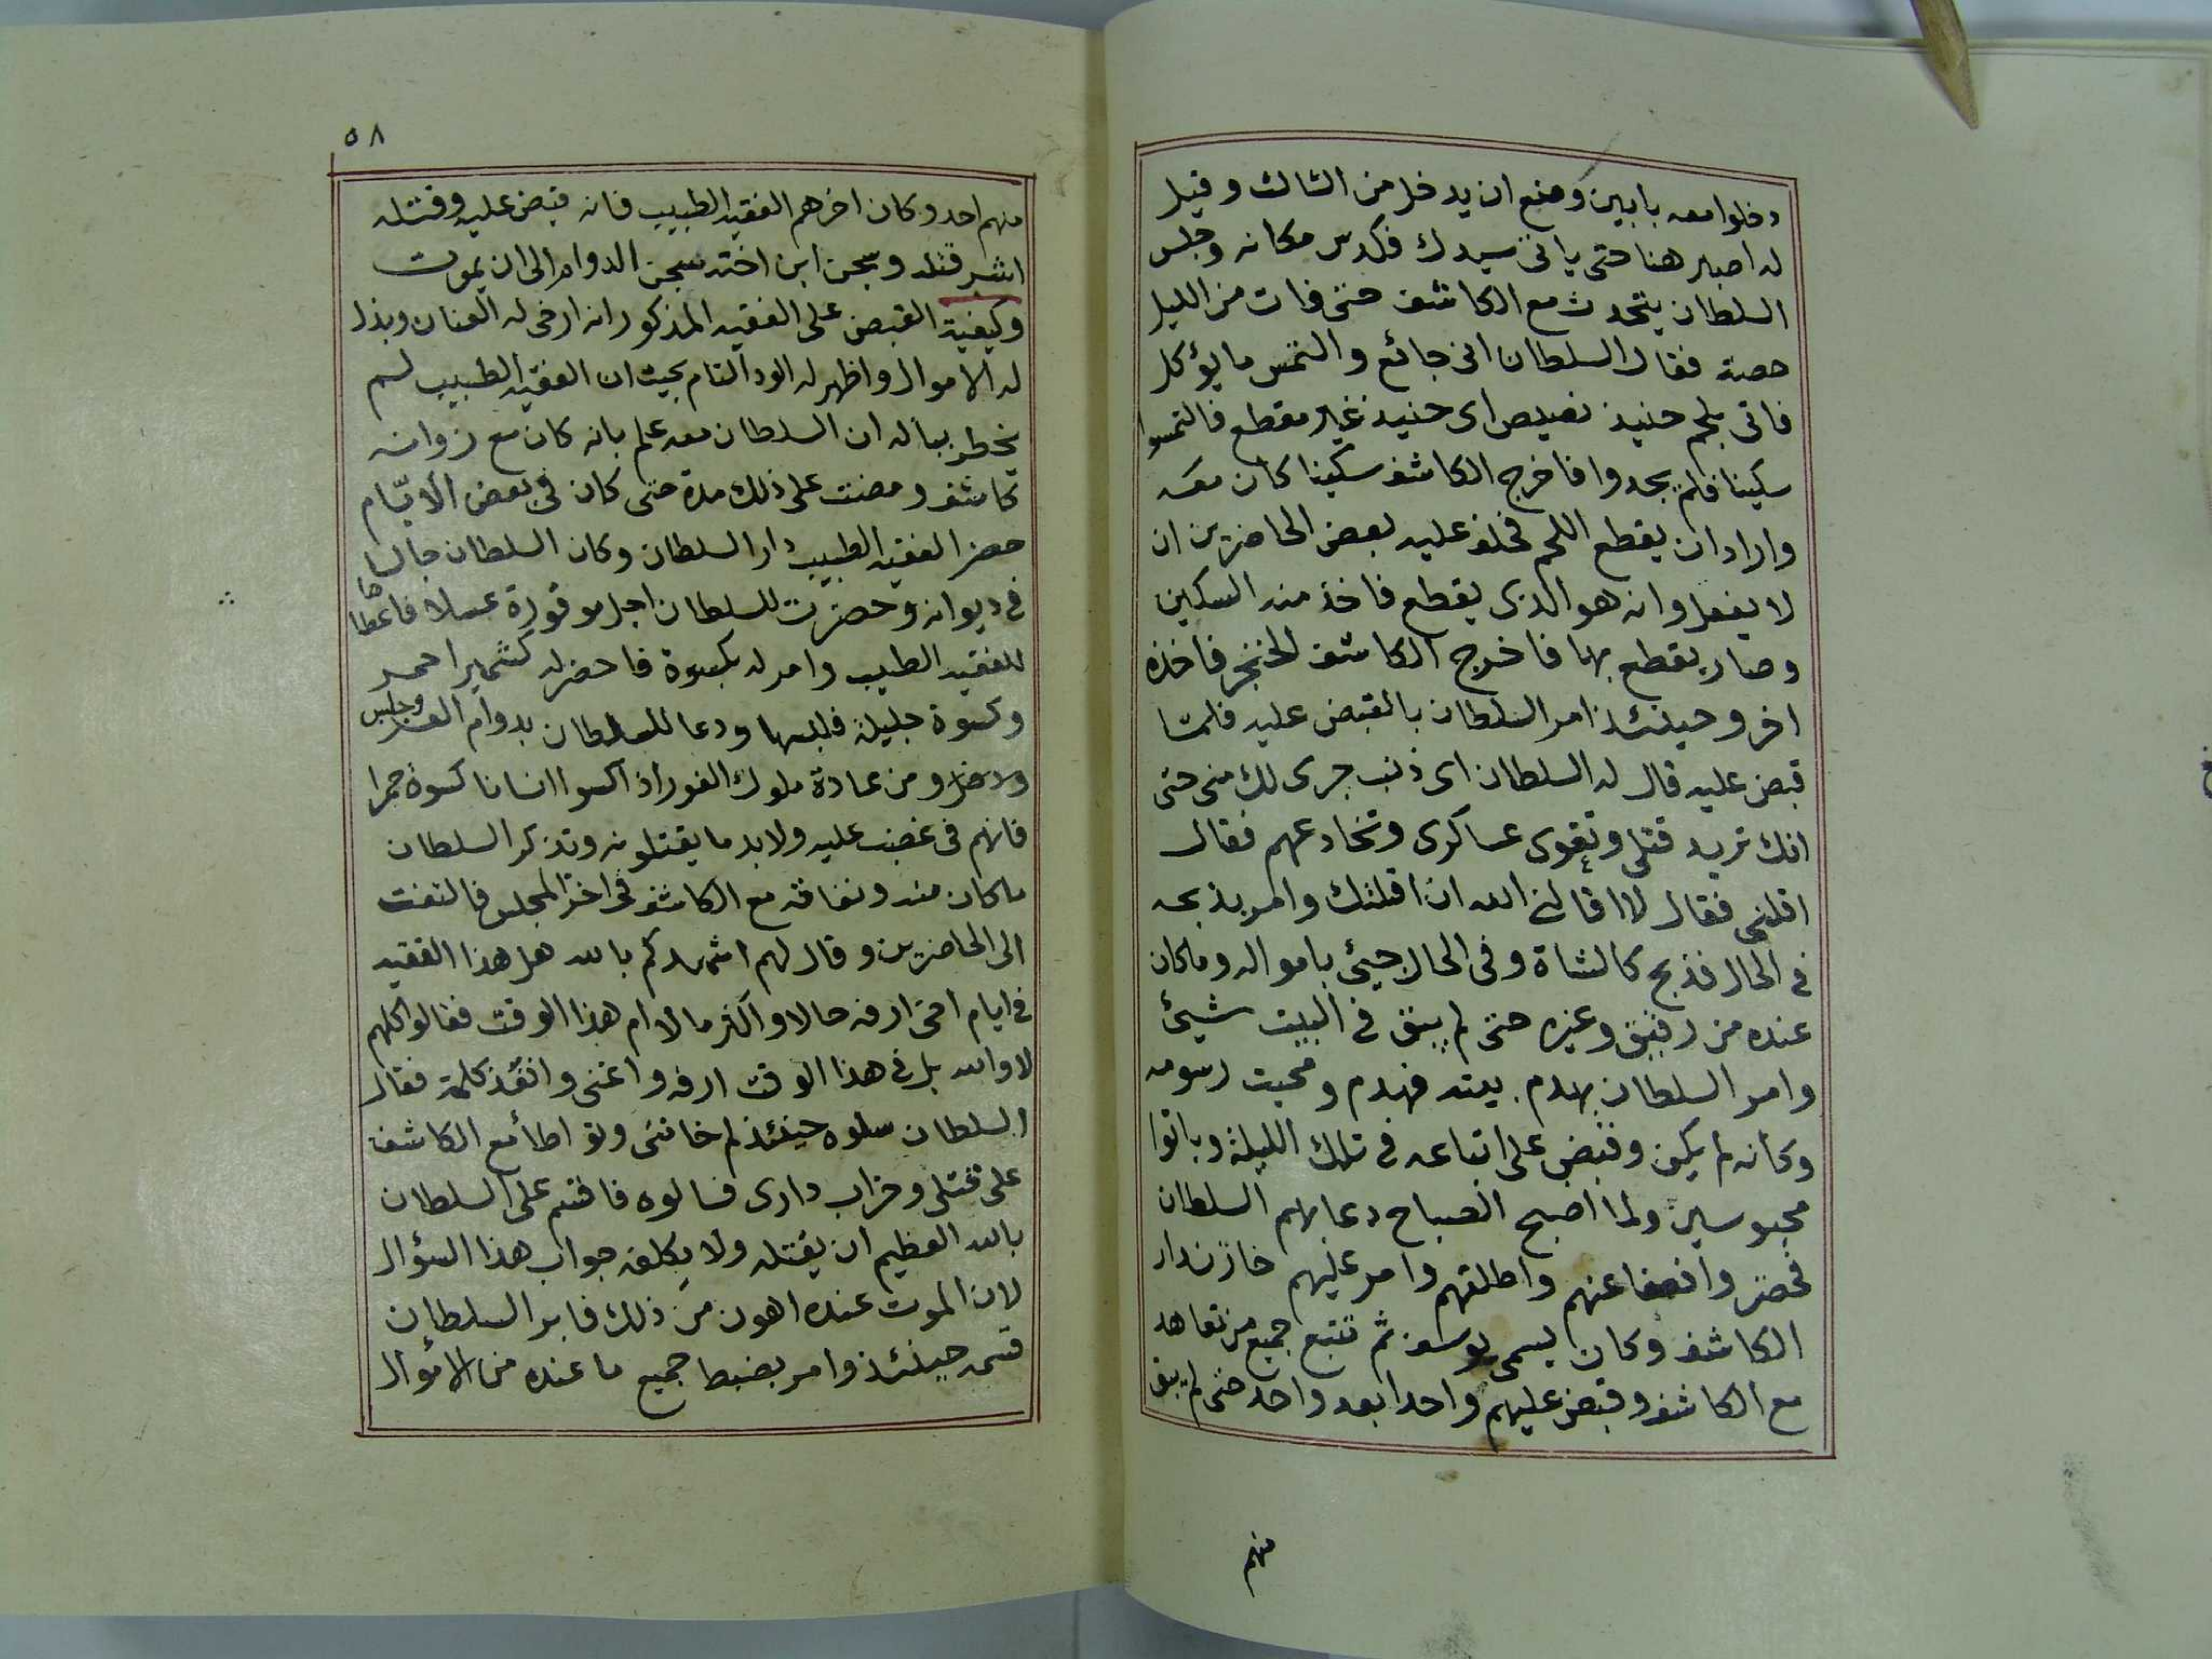 دخلوا معه بابين ومنع ان يدخل من الثالث وقيل
له اصبر هنا حتى ياتى سيدك فكدس مكانه وجلس
السلطان يتحدث مع الكاشف حتى فات من الليل
حصة فقال السلطان انى جائع والتمس ما يؤكل
فاتى بلحم حنيذ نصيص اى حنيذ غير مقطع فالتمسوا
سكينا فلم يجدوا فاخرج الكاشف سكينا كان معه
واراد ان يقطع اللحم فحلف عليه بعض الحاضرين ان
لا يفعل وانه هو الذى يقطع فاخذ منه السكين
وصار يقطع بها فاخرج الكاشف الخنجر فاخذه
اخر وحينئذ امر السلطان بالقبض عليه فلما
قبض عليه قال له السلطان اى ذنب جرى لك منى حتى
انك تريد قتلى وتقوى عساكرى وتخادعهم فقال
اقلنى فقال لا اقالنى الله ان اقلتك وامر بذبحه
فى الحال فذبح كالشاة وفى الحال جيئ بامواله وماكان
عنده من رقيق وغيره حتى لم يبق فى البيت شيئ
وامر السلطان بهدم بيته فهدم ومحيت رسومه
وكأنه لم يكن وقبض على اتباعه فى تلك الليلة وباتوا
محبوسين ولما اصبح الصباح دعا بهم السلطان
فحضروا فعفا عنهم واطلقهم وامر عليهم خازندار
الكاشف وكان يسمى يوسف ثم تتبع جميع من تعاهد
مع الكاشف وقبض عليهم واحدا بعد واحد حتى لم يبق
منهم
٥٨
منهم احد وكان اخرهم الفقيه الطبيب فانه قبض عليه وقتله
اشر قتله وسجن ابن اخته سجن الدوام الى ان يموت
وكيفية القبض على الفقيه المذكور انه ارخى له العنان وبذل
له الاموال واظهر له الود التام بحيث ان الفقيه الطبيب لم
يخطر بباله ان السلطان معه علم بانه كان مع زوانه
كاشف ومضت على ذلك مدة حتى كان فى بعض الايام
حضر الفقيه الطبيب دار السلطان وكان السلطان جالسا
فى ديوانه وحضرت للسلطان اجل موقورة عسلا فاعطاها
للفقيه الطبيب وامر له بكسوة فاحضر له كشمير احمر
وكسوة جليلة فلبسها ودعا للسلطان بدوام العز وجلس
ومن عادة ملوك الفور اذا كسوا انسانا كسوة حمرا
فانهم فى غضب عليه ولا بد ما يقتلونه وتذكر السلطان
ماكان منه ونفاقه مع الكاشف فى اخر المجلس فالتفت
الى الحاضرين وقال لهم اشهدكم بالله هل هذا الفقيه
فى ايام اخى ارفه حالا واكثر مالا ام هذا الوقت فقالوا كلهم
لا والله بل فى هذا الوقت ارفه واغنى وانفذ كلمة فقال
السلطان سلوه حينئذ لم خاننى وتواطأ مع الكاشف
على قتلى وخراب دارى فسالوه فاقسم على السلطان
بالله العظيم ان يقتله ولا يكلفه جواب هذا السؤال
لان الموت عنده اهون من ذلك فابر السلطان
قسمه حينئذ وامر بضبط جميع ما عنده من الاموال